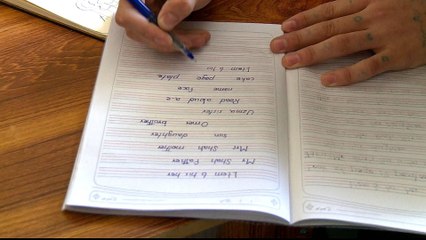 Item 6 his her
Mr Shah Father
Mr Shah mother
sun daughter
Omer brother
Uzma sister
Read aloud a-e
name face
cake page plate
Item 6 his